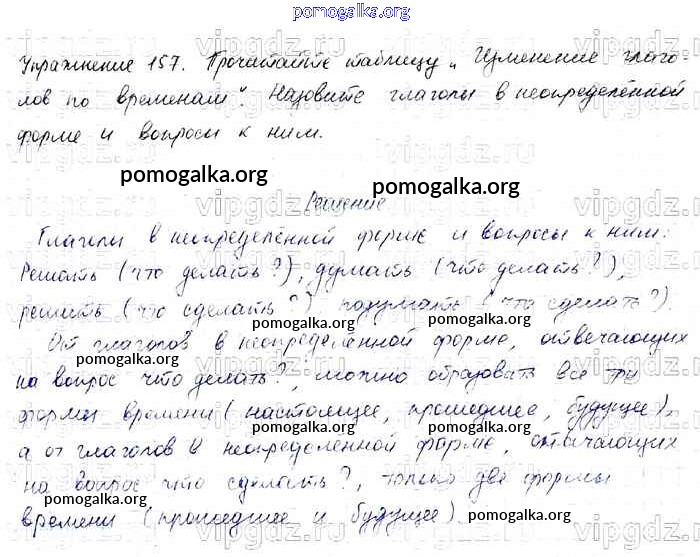 pomogalka.org
Упражнение 157. Прочитайте таблицу „Изменение глаго-
лов по временам". Назовите глаголы в неопределённой
форме и вопросы к ним.
pomogalka.org
pomogalka.org
Решение
Глаголы в неопределённой форме и вопросы к ним:
Решать (что делать?), думать (что делать?),
решить (что сделать?) подумать (что сделать?).
pomogalka.org
pomogalka.org
От глаголов в неопределённой форме, отвечающих
pomogalka.org
на вопрос что делать?, можно образовать все три
формы времени (настоящее, прошедшее, будущее),
pomogalka.org
pomogalka.org
а от глаголов в неопределённой форме, отвечающих
на вопрос что сделать?, только две формы
pomogalka.org
времени (прошедшее и будущее)
pomogalka.org